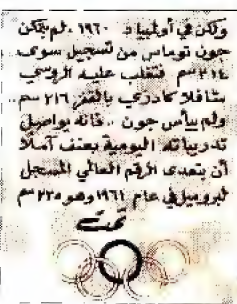 ولكن في أولمبياد ١٩٦٠، لم يتمكن
جون توماس من تسجيل سوى
٢١٤ سم فتغلب عليه الروسي
شافلاكادزي بالقفز ٢١٦ سم
ولم ييأس جون .. فانه يواصل
تدريباته اليومية بعنف آملا
أن يتعدى الرقم العالمي المسجل
لبروميل في عام ١٩٦١ وهو ٢٢٥ سم
تمت